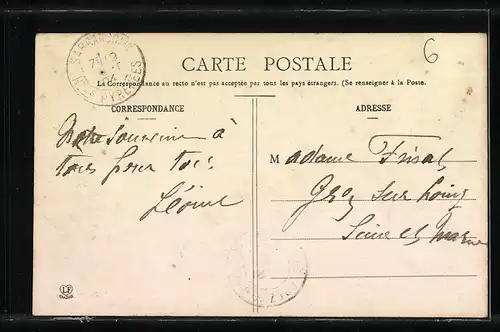 6
CARTE POSTALE
La Correspondance au recto n'est pas acceptée par tous les pays étrangers. (Se renseigner à la Poste.
CORRESPONDANCE
souvenir à
tous pour tous
Léonie
ADRESSE
Madame
Grez sur Loing
Seine et Marne
PYRENÉES